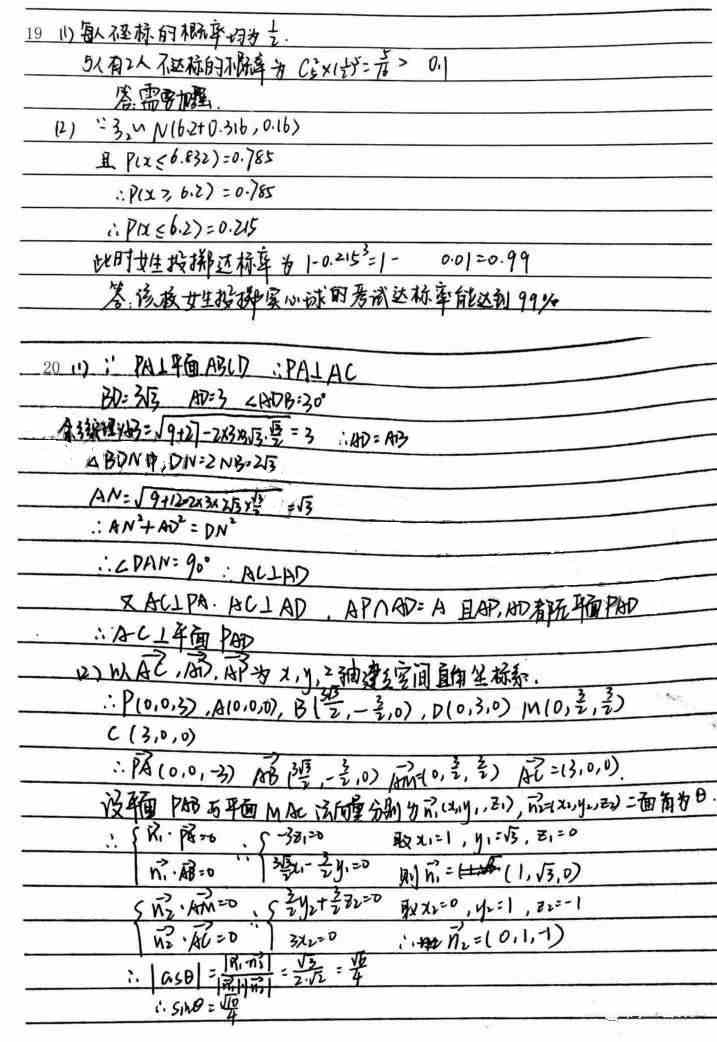 19 (1) 每人不达标的概率均为 1/2.
5人有2人不达标的概率为 C₅²×(1/2)⁵=5/16 > 0.1
答:需要加强.
(2) ∵ξ₂~N(6.2+0.316,0.16)
且 P(x≤6.832)=0.785
∴P(x≥6.2)=0.785
∴P(x≤6.2)=0.215
此时女生投掷达标率为 1-0.215³=1- 0.01=0.99
答:该校女生投掷实心球的考试达标率能达到99%
20 (1) ∵ PA⊥平面ABCD ∴PA⊥AC
BD=3√3 AD=3 ∠ADB=30°
余弦定理 =√(9+27-2×3×3√3·√3/2)=3 ∴AD=AB
△BDN中,DN=2NB=2√3
AN=√(9+12-2×3×2√3×√3/2)=√3
∴AN²+AD²=DN²
∴∠DAN=90° ∴AC⊥AD
又AC⊥PA. AC⊥AD , AP∩AD=A 且AP,AD都在平面PAD
∴AC⊥平面PAD
(2) 以AC→,AD→,AP→为x,y,z轴建立空间直角坐标系.
∴P(0,0,3),A(0,0,0), B(3√3/2,-3/2,0),D(0,3,0) M(0,3/2,3/2)
C(3,0,0)
∴PA→(0,0,-3) AB→(3√3/2,-3/2,0) AM→=(0,3/2,3/2) AC→=(3,0,0).
设平面 PAB与平面MAC法向量分别为n₁→(x₁,y₁,z₁),n₂→=(x₂,y₂,z₂)二面角为θ.
∴ {n₁→·PA→=0 ∴{-3z₁=0 取x₁=1,y₁=√3,z₁=0
n₁→·AB→=0 3√3/2x₁-3/2y₁=0 则n₁→=(1,√3,0)
{n₂→·AM→=0 ∴{3/2y₂+3/2z₂=0 取x₂=0,y₂=1,z₂=-1
n₂→·AC→=0 3x₂=0 ∴n₂→=(0,1,-1)
∴|cosθ|=|n₁→·n₂→|/|n₁→||n₂→|=√3/2·√2=√6/4
∴sinθ=√10/4